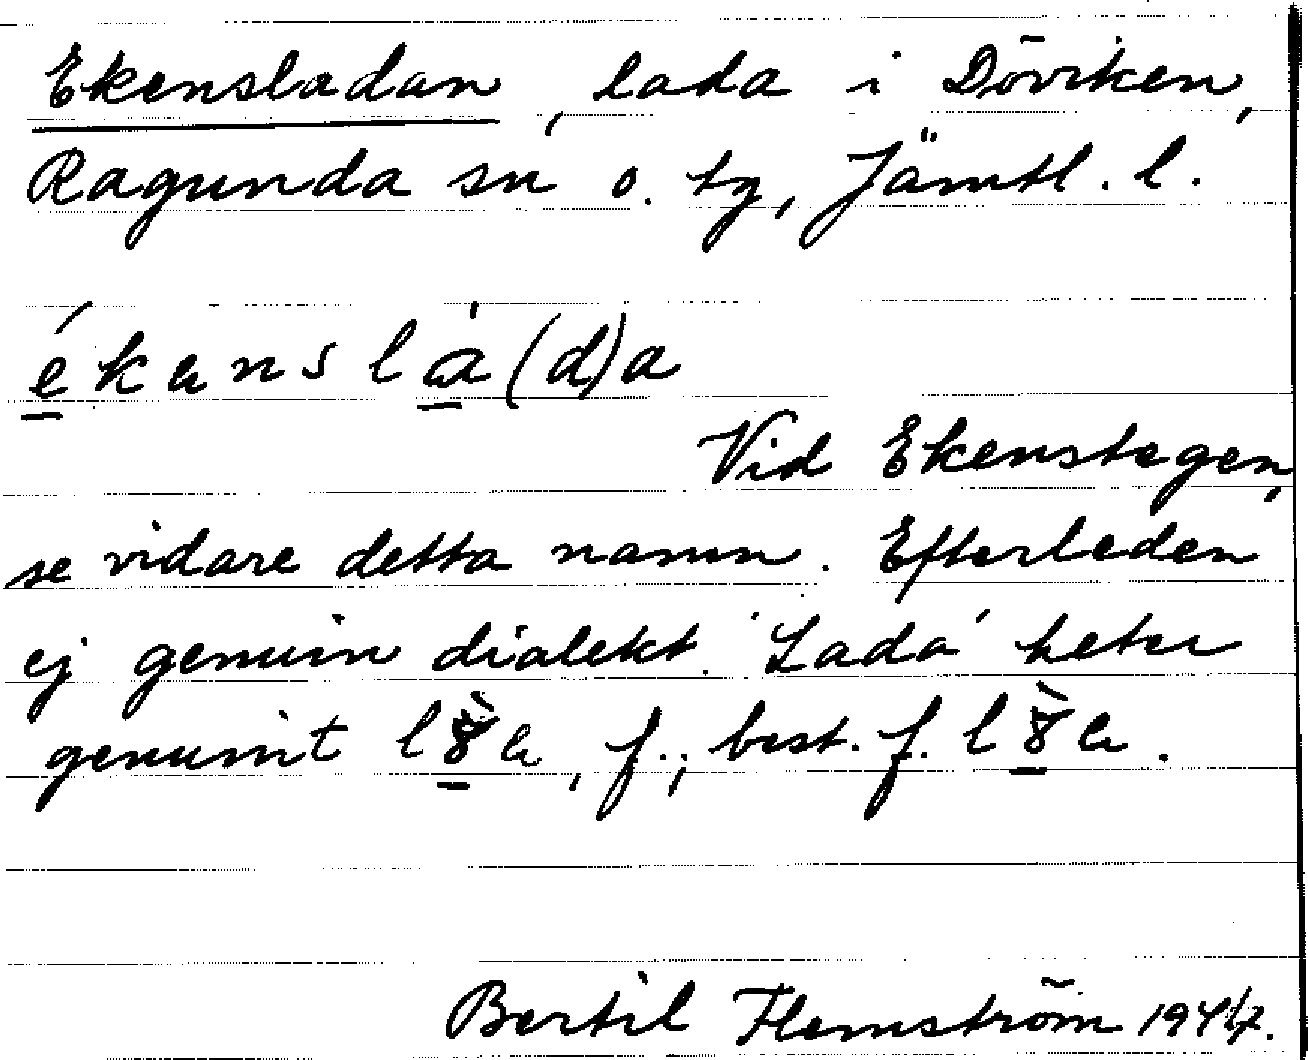 Ekensladan, lada i Döviken,
Ragunda sn o. tg, Jämtl. l.
é̱kansla̱̍(d)a
Vid Ekenstegen,
se vidare detta namn. Efterleden
ej genuin dialekt. 'Lada' heter
genuint lɤ̱̀a, f.; best. f. lɤ̱̀a.
Bertil Flemström 1947.